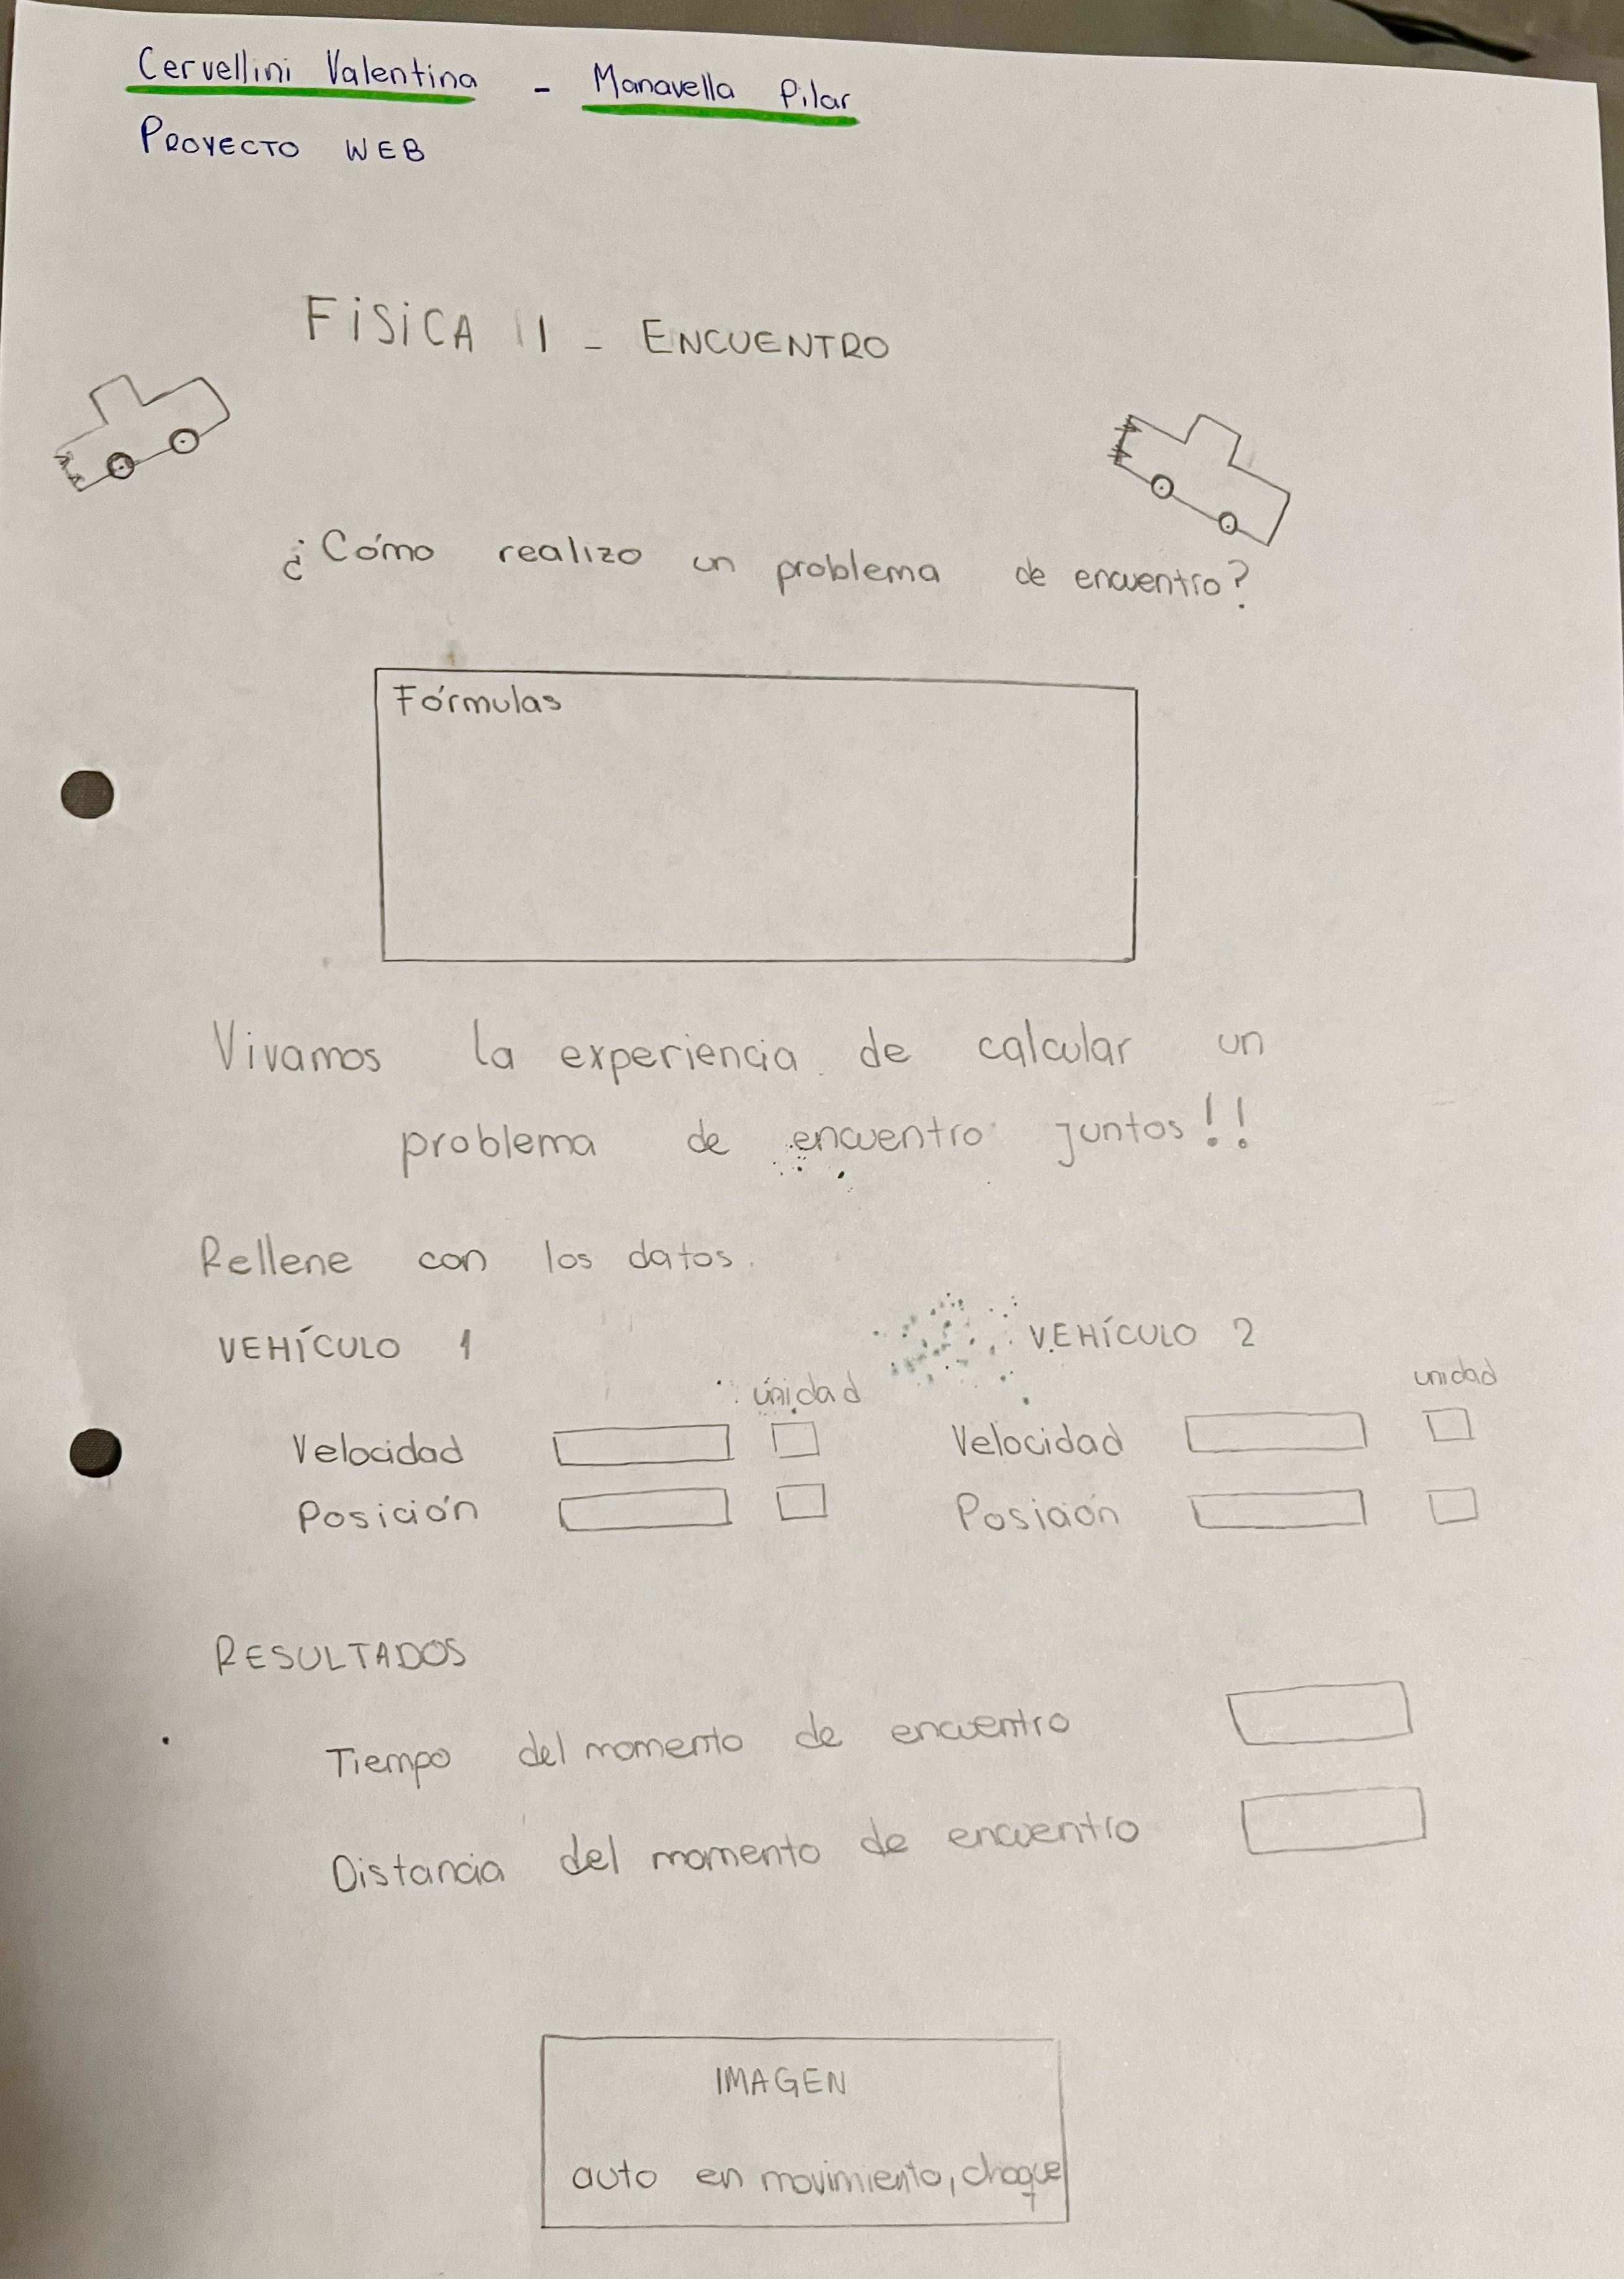 Cervellini Valentina - Manavella Pilar
PROYECTO WEB
FÍSICA II - ENCUENTRO
¿Cómo realizo un problema de encuentro?
Fórmulas
Vivamos la experiencia de calcular un
problema de encuentro juntos!!
Rellene con los datos.
VEHÍCULO 1 VEHÍCULO 2
unidad unidad
Velocidad Velocidad
Posición Posición
RESULTADOS
Tiempo del momento de encuentro
Distancia del momento de encuentro
IMAGEN
auto en movimiento, choque